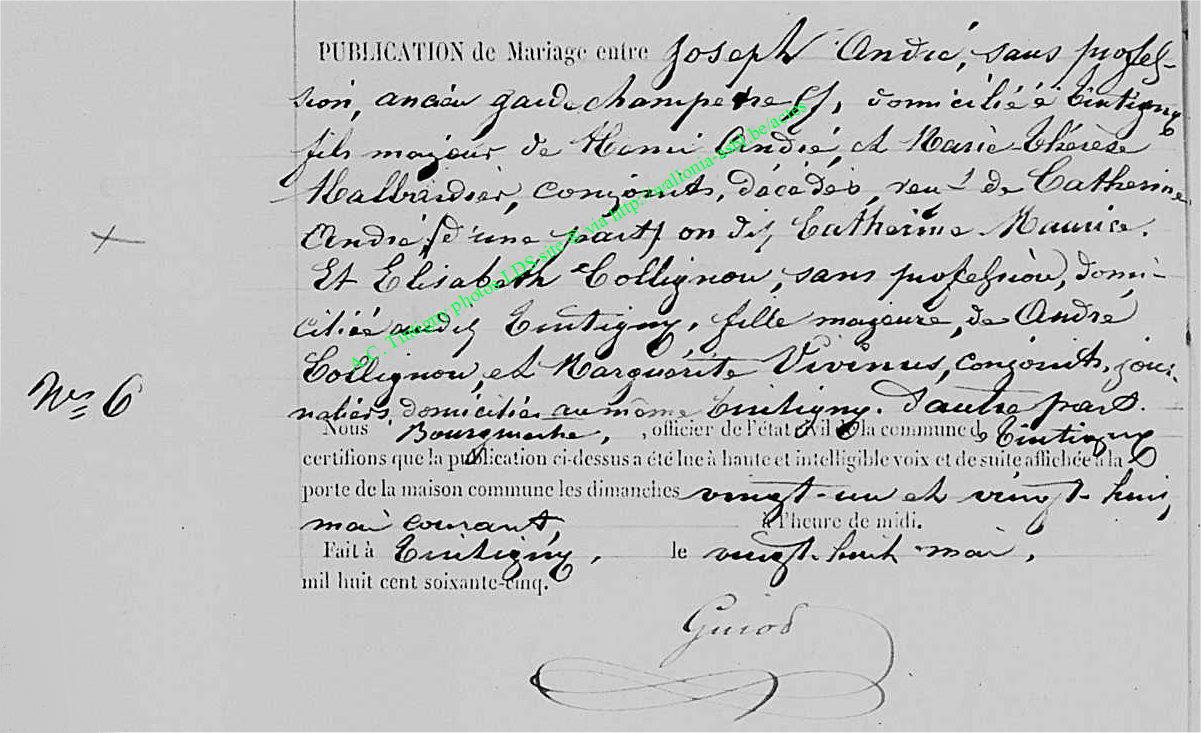 PUBLICATION de Mariage entre Joseph André, sans profes-
sion, ancien garde champetre, domicilié à Tintigny
fils majeur de Henri André, et Marie-Thérèse
Malbardier, conjoints, décédés, veuf de Catherine
André, d'une part, on dit Catherine Maurice.
Et Elisabeth Collignon, sans profession, domi-
ciliée audit Tintigny, fille majeure, de André
Collignon, et Marguérite Vivinus, conjoints, jour-
naliers, domiciliés au même Tintigny. D'autre part.
Nous Bourgmestre, , officier de l'état civil de la commune de Tintigny
certifions que la publication ci-dessus a été lue à haute et intelligible voix et de suite affichée à la
N° 6
porte de la maison commune les dimanches vingt-un et vingt-huit,
mai courant, à l'heure de midi.
Fait à Tintigny, le vingt-huit mai,
mil huit cent soixante-cinq.
Guiot
A.C. Tintigny photos LDS site & via http://wallonia-asbl.be/actes